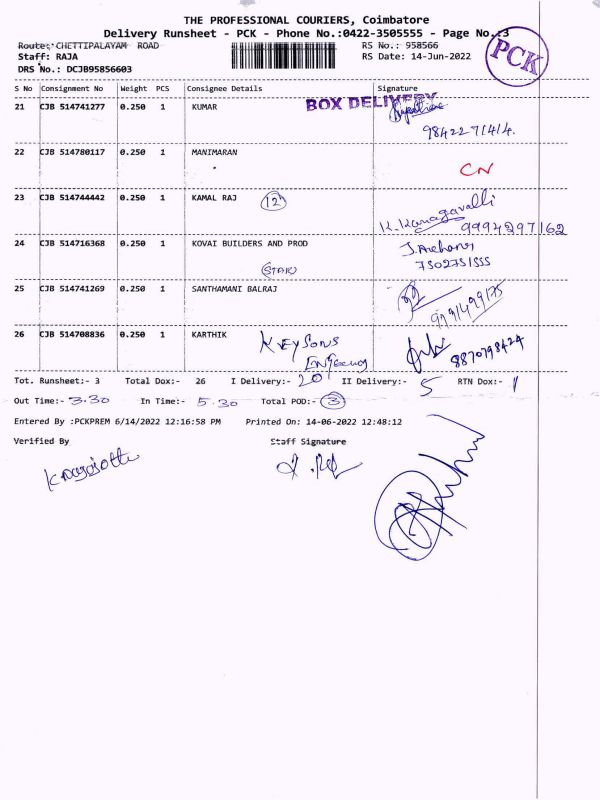 THE PROFESSIONAL COURIERS, Coimbatore
Delivery Runsheet - PCK - Phone No.:0422-3505555 - Page No.:3
Route: CHETTIPALAYAM ROAD RS No.: 958566
Staff: RAJA RS Date: 14-Jun-2022
DRS No.: DCJB95856603
PCK
S No Consignment No Weight PCS Consignee Details Signature
BOX DELIVERY
21 CJB 514741277 0.250 1 KUMAR
9842271414.
22 CJB 514780117 0.250 1 MANIMARAN
CN
23 CJB 514744442 0.250 1 KAMAL RAJ 12
K. Kanagavalli
9994297162
24 CJB 514716368 0.250 1 KOVAI BUILDERS AND PROD
7502751555
25 CJB 514741269 0.250 1 SANTHAMANI BALRAJ
26 CJB 514708836 0.250 1 KARTHIK KEYSONS
8870798424
Tot. Runsheet:- 3 Total Dox:- 26 I Delivery:- 20 II Delivery:- 5 RTN Dox:- 1
Out Time:- 3.30 In Time:- 5.30 Total POD:- 3
Entered By :PCKPREM 6/14/2022 12:16:58 PM Printed On: 14-06-2022 12:48:12
Verified By Staff Signature